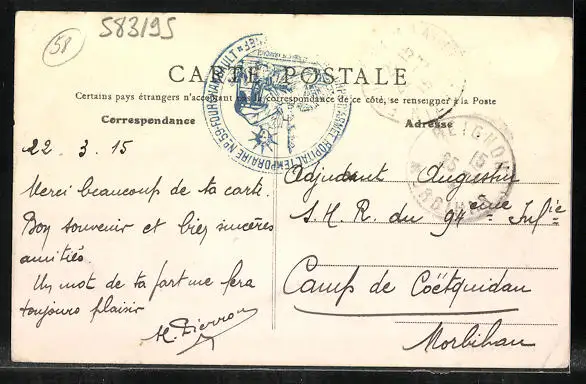 58
583/95
CARTE POSTALE
Certains pays étrangers n'acceptant pas la correspondance de ce côté, se renseigner à la Poste
Correspondance
Adresse
HOPITAL TEMPORAIRE N° 59
22. 3. 15
Merci beaucoup de ta carte.
Bon souvenir et bien sincères
amitiés.
Un mot de ta part me fera
toujours plaisir
H. Pierron
Adjudant Augustin
S.H.R. du 94ème Inf ie
Camp de Coëtquidan
Morbihan